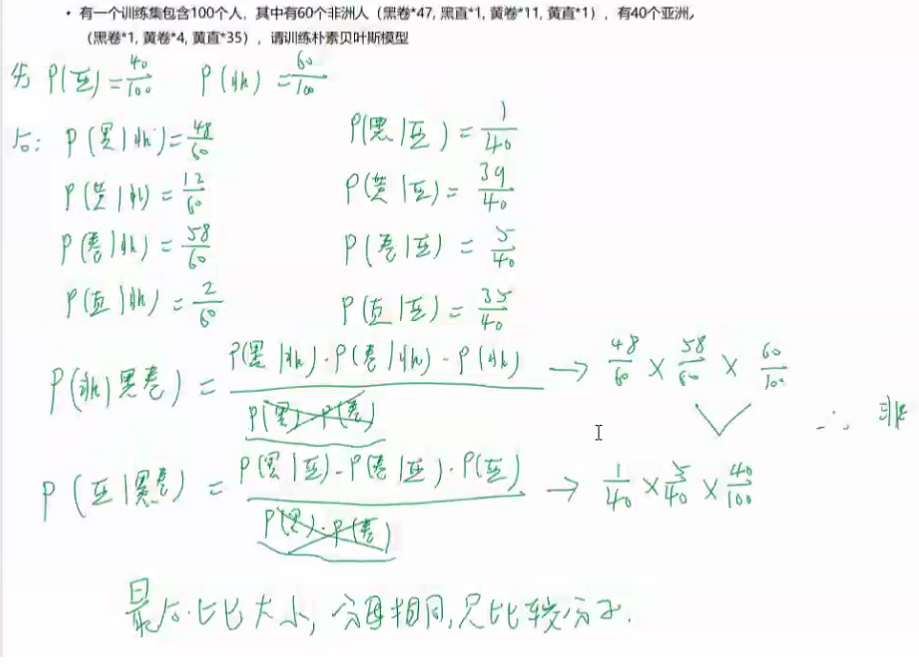 • 有一个训练集包含100个人，其中有60个非洲人（黑卷*47, 黑直*1, 黄卷*11, 黄直*1），有40个亚洲,
（黑卷*1, 黄卷*4, 黄直*35），请训练朴素贝叶斯模型
先 P(亚)=40/100 P(非)=60/100
后: P(黑|非)=48/60 P(黑|亚)=1/40
P(黄|非)=12/60 P(黄|亚)=39/40
P(卷|非)=58/60 P(卷|亚)=5/40
P(直|非)=2/60 P(直|亚)=35/40
P(非|黑卷)=P(黑|非)·P(卷|非)·P(非)/P(黑)·P(卷) → 48/60 × 58/60 × 60/100
∴ 非
P(亚|黑卷)=P(黑|亚)·P(卷|亚)·P(亚)/P(黑)·P(卷) → 1/40 × 5/40 × 40/100
最后·比大小, 分母相同,只比较分子.